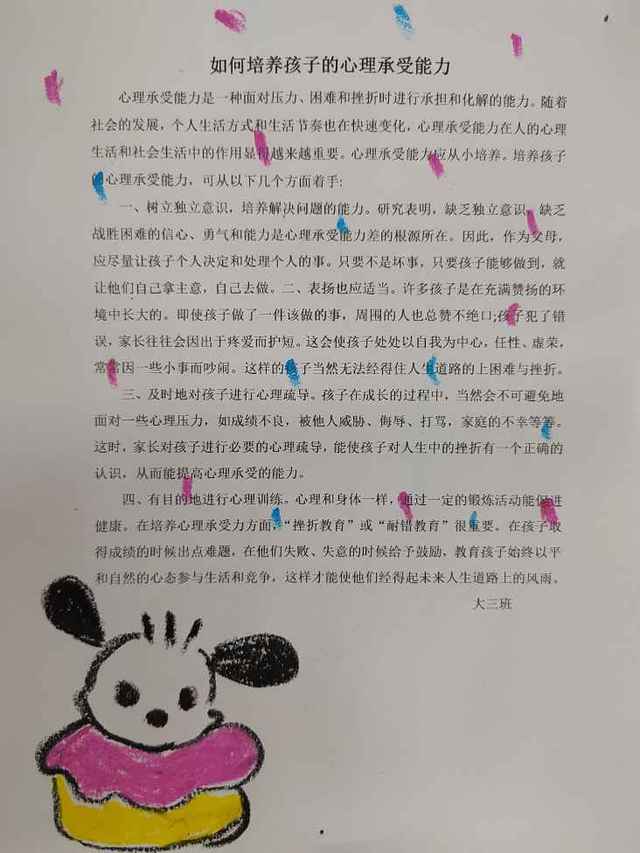 如何培养孩子的心理承受能力
心理承受能力是一种面对压力、困难和挫折时进行承担和化解的能力。随着
社会的发展，个人生活方式和生活节奏也在快速变化，心理承受能力在人的心理
生活和社会生活中的作用显得越来越重要。心理承受能力应从小培养。培养孩子
的心理承受能力，可从以下几个方面着手:
一、树立独立意识，培养解决问题的能力。研究表明，缺乏独立意识，缺乏
战胜困难的信心、勇气和能力是心理承受能力差的根源所在。因此，作为父母，
应尽量让孩子个人决定和处理个人的事。只要不是坏事，只要孩子能够做到，就
让他们自己拿主意，自己去做。二、表扬也应适当。许多孩子是在充满赞扬的环
境中长大的。即使孩子做了一件该做的事，周围的人也总赞不绝口;孩子犯了错
误，家长往往会因出于疼爱而护短。这会使孩子处处以自我为中心，任性、虚荣，
常常因一些小事而吵闹。这样的孩子当然无法经得住人生道路的上困难与挫折。
三、及时地对孩子进行心理疏导。孩子在成长的过程中，当然会不可避免地
面对一些心理压力，如成绩不良，被他人威胁、侮辱、打骂，家庭的不幸等等。
这时，家长对孩子进行必要的心理疏导，能使孩子对人生中的挫折有一个正确的
认识，从而能提高心理承受的能力。
四、有目的地进行心理训练。心理和身体一样，通过一定的锻炼活动能促进
健康。在培养心理承受力方面，“挫折教育”或“耐错教育”很重要。在孩子取
得成绩的时候出点难题，在他们失败、失意的时候给予鼓励，教育孩子始终以平
和自然的心态参与生活和竞争，这样才能使他们经得起未来人生道路上的风雨。
大三班